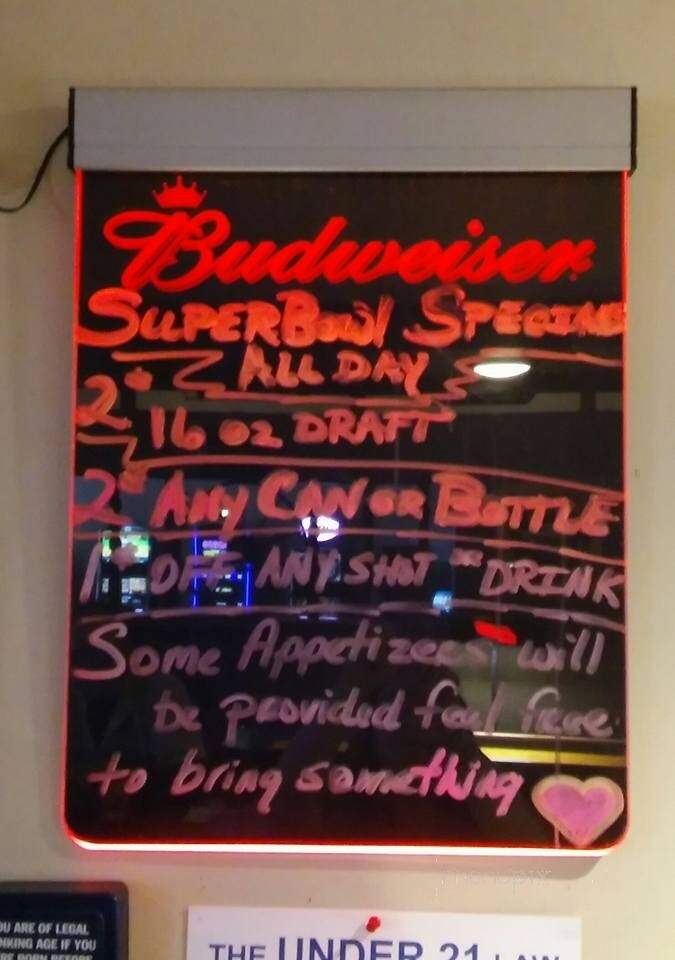 Budweiser
SUPERBOWL SPECIALS
ALL DAY
2 16 oz DRAFT
2 ANY CAN OR BOTTLE
1 OFF ANY SHOT OR DRINK
Some Appetizers will
be provided feel free
to bring something
OU ARE OF LEGAL
NKING AGE IF YOU
RE BORN BEFORE
THE UNDER 21 LAW